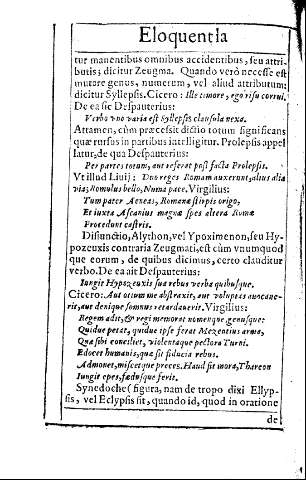 Eloquentia
tur manentibus omnibus accidentibus, seu attri
butis; dicitur Zeugma. Quando verò necesse est
mutare genus, numerum, vel aliud attributum;
dicitur Syllepsis. Cicero: Ille timore, ego risu corrui.
De ea sic Despauterius:
Verbo vno varia est Syllepsis clausula nexa.
Attamen, cùm præcesit dictio totum significans
quæ rursus in partibus intelligitur. Prolepsis appel
latur, de qua Despauterius:
Per partes totum, aut referet post facta Prolepsis.
Vt illud Liuij: Duo reges Romam auxerunt, alius alia
via; Romulus bello, Numa pace. Virgilius:
Tum pater Aeneas, Romanæ stirpis origo,
Et iuxta Ascanius magnæ spes altera Romæ
Procedunt castris.
Disiunctio, Alython, vel Ypoximenon, seu Hy
pozeuxis contraria Zeugmati, est cùm vnumquod
que eorum, de quibus dicimus, certo clauditur
verbo. De ea ait Despauterius:
Iungit Hypozeuxis sua rebus verba quibusque.
Cicero: Aut otium me abstraxit, aut voluptas auocaue-
rit, aut denique somnus retardauerit. Virgilius:
Regem adit, & regi memorat nomenque, genusque:
Quidue petat, quidue ipse ferat Mezentius arma,
Quæ sibi conciliet, violentaque pectora Turni.
Edocet humanis, quæ sit fiducia rebus.
Admonet, miscetque preces. Haud sit mora, Tharcon
Iungit opes, fœdusque ferit.
Synedoche (figura, nam de tropo dixi) Ellyp-
sis, vel Eclypsis fit, quando id, quod in oratione
de